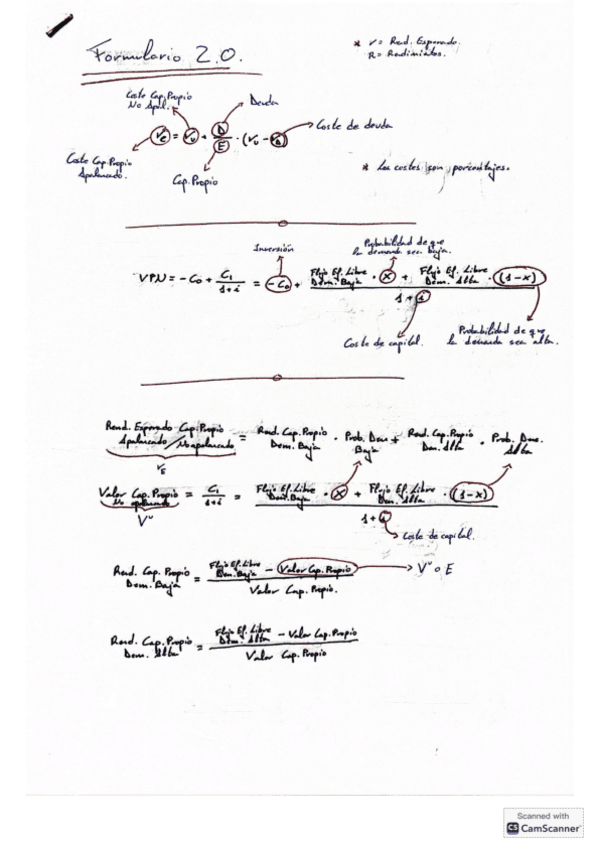 Formulario 2.0.
* r = Rend. Esperado.
R = Rendimientos.
Coste Cap. Propio
No Apal.
Deuda
r_e = r_u + D/E · (r_u - r_D)
Coste de deuda
Coste Cap. Propio
Apalancado.
Cap. Propio
* Los costes son porcentajes.
Inversión
Probabilidad de que
la demanda sea baja.
VPN = -C₀ + C₁/(1+i) = -C₀ + (Flujo Ef. Libre Dem. Baja · x + Flujo Ef. Libre Dem. Alta · (1-x))/(1+i)
Coste de capital.
Probabilidad de que
la demanda sea alta.
Rend. Esperado Cap. Propio Apalancado/No apalancado = Rend. Cap. Propio Dem. Baja · Prob. Dem Baja + Rend. Cap. Propio Dem. Alta · Prob. Dem. Alta
r_E
Valor Cap. Propio No apalancado = C₁/(1+i) = (Flujo Ef. Libre Dem. Baja · x + Flujo Ef. Libre Dem. Alta · (1-x))/(1+i)
Vᵘ
Coste de capital.
Rend. Cap. Propio Dem. Baja = (Flujo Ef. Libre Dem. Baja - Valor Cap. Propio)/Valor Cap. Propio.
Vᵘ o E
Rend. Cap. Propio Dem. Alta = (Flujo Ef. Libre Dem. Alta - Valor Cap. Propio)/Valor Cap. Propio
Scanned with
CS CamScanner